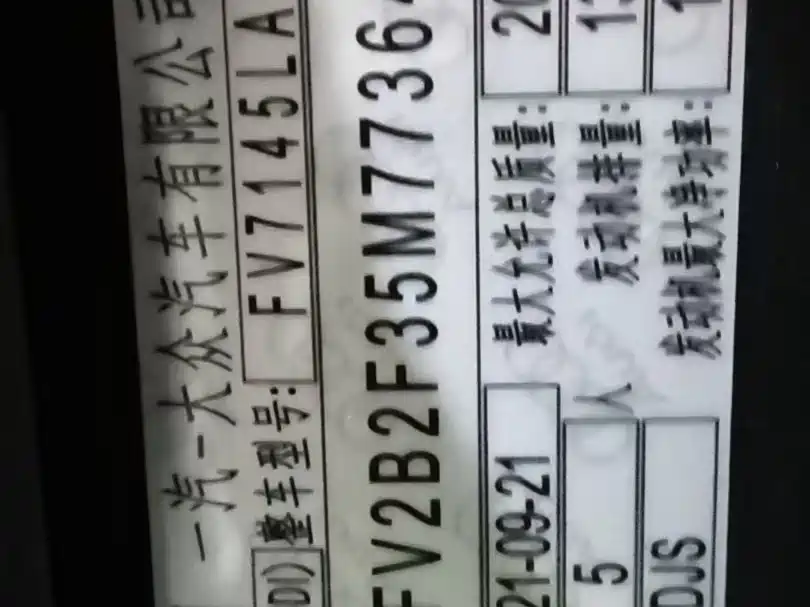 一汽-大众汽车有限公司
DI) 整车型号: FV7145LA
FV2B2F35M7736
21-09-21 最大允许总质量: 20
5 人 发动机排量: 13
DJS 发动机最大净功率: 1